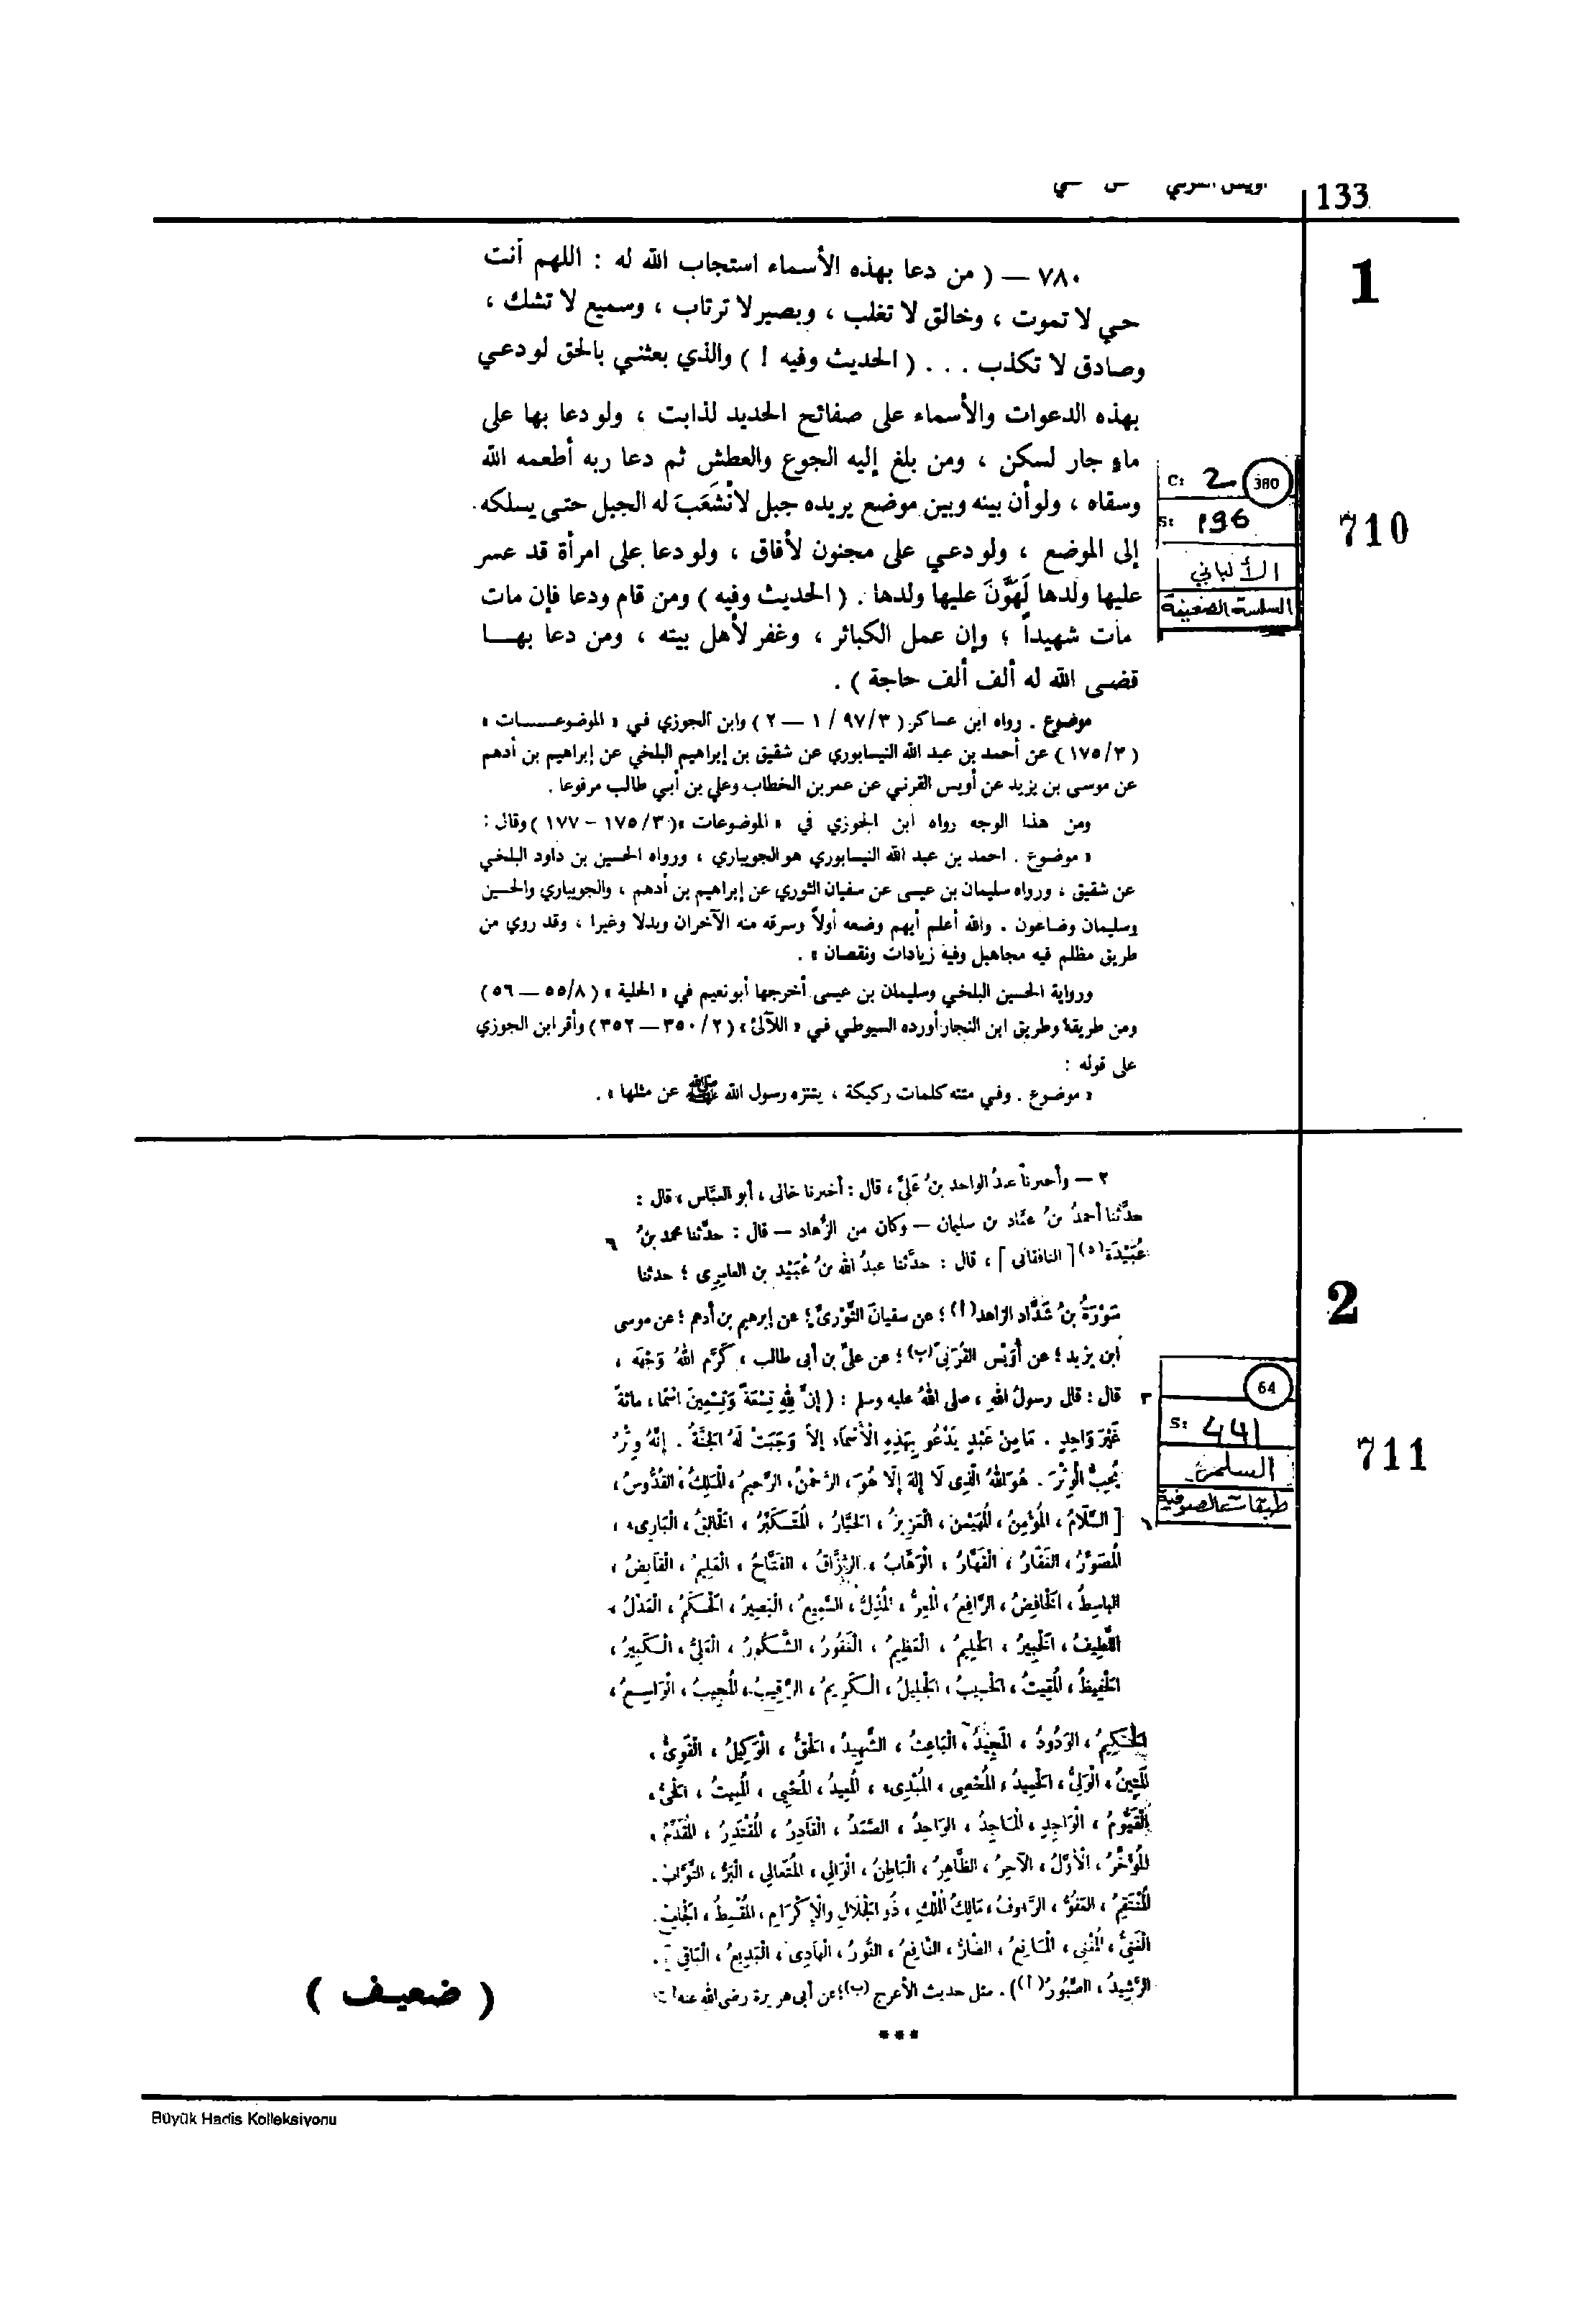 133
1
٧٨٠ — ( من دعا بهذه الأسماء استجاب الله له : اللهم أنت
حي لا تموت ، وخالق لا تغلب ، وبصير لا ترتاب ، وسميع لا تشك ،
وصادق لا تكذب . . . ( الحديث وفيه ! ) والذي بعثني بالحق لو دعي
بهذه الدعوات والأسماء على صفائح الحديد لذابت ، ولو دعا بها على
ماء جار لسكن ، ومن بلغ إليه الجوع والعطش ثم دعا ربه أطعمه الله
وسقاه ، ولو أن بينه وبين موضع يريده جبل لانْشَعَبَ له الجبل حتى يسلكه
إلى الموضع ، ولو دعي على مجنون لأفاق ، ولو دعا على امرأة قد عسر
عليها ولدها لَهَوَّنَ عليها ولدها . ( الحديث وفيه ) ومن قام ودعا فإن مات
مات شهيداً ؛ وإن عمل الكبائر ، وغفر لأهل بيته ، ومن دعا بهـا
قضى الله له ألف ألف حاجة ) .
C: 2 380
S: 196
الألباني
السلسة الضعيفة
710
موضوع . رواه ابن عساكر ( ٣/ ٩٧ / ١ — ٢ ) وابن الجوزي في « الموضوعـات »
( ٣/ ١٧٥ ) عن أحمد بن عبد الله النيسابوري عن شقيق بن إبراهيم البلخي عن إبراهيم بن أدهم
عن موسى بن يزيد عن أويس القرني عن عمر بن الخطاب وعلي بن أبي طالب مرفوعا .
ومن هذا الوجه رواه ابن الجوزي في « الموضوعات » ( ٣/ ١٧٥ - ١٧٧ ) وقال :
« موضوع . احمد بن عبد الله النيسابوري هو الجويباري ، ورواه الحسين بن داود البلخي
عن شقيق ، ورواه سليمان بن عيسى عن سفيان الثوري عن إبراهيم بن أدهم ، والجويباري والحسين
وسليمان وضاعون . والله أعلم أيهم وضعه أولاً وسرقه منه الآخران وبدلا وغيرا ، وقد روي من
طريق مظلم فيه مجاهيل وفيه زيادات ونقصان » .
ورواية الحسين البلخي وسليمان بن عيسى أخرجها أبو نعيم في « الحلية » ( ٨/ ٥٥ — ٥٦ )
ومن طريقة وطريق ابن النجار أورده السيوطي في « اللآلئ » ( ٢/ ٣٥٠ — ٣٥٢ ) وأقر ابن الجوزي
على قوله :
« موضوع . وفي متنه كلمات ركيكة ، يتنزه رسول الله ﷺ عن مثلها » .
2
٢ — وأخبرنا عبدُ الواحد بنُ عَلِيٍّ ، قال : أخبرنا خالى ، أبو العبَّاس ، قال :
حدَّثنا أحمدُ بنُ عبَّاد بن سليمان — وكان من الزُّهاد — قال : حدَّثنا محمد بنُ ٦
عُبَيْدَة(٥) [ النافقانى ] ، قال : حدَّثنا عبدُ الله بنُ عُبَيْد بن العامِرِى ؛ حدثنا
سَوْرَةُ بنُ شَدَّاد الزاهد(أ) ؛ عن سفيانَ الثَّوْرِىِّ ؛ عن إبرهيم بن أدهم ؛ عن موسى
ابن يزيد ؛ عن أُوَيْس القَرَنِىّ(ب) ؛ عن علىِّ بن أبى طالب ، كَرَّم اللهُ وَجْهَه ،
قال : قال رسولُ الله ، صلى اللهُ عليه وسلم : ( إنَّ لِلهِ تِسْعَةً وَتِسْعِينَ اسْمًا ، مائةً ٣
غَيْرَ وَاحِدٍ . مَا مِنْ عَبْدٍ يَدْعُو بِهَذِهِ الْأَسْمَاءِ إلاَّ وَجَبَتْ لَهُ الجَنَّةُ . إنَّهُ وِتْرٌ
يُحِبُّ الْوِتْرَ . هُوَ اللهُ الَّذِى لَا إلَهَ إلَّا هُوَ ، الرَّحْمٰنُ ، الرَّحيمُ ، الْمَلِكُ ، الْقُدُّوسُ ،
[ السَّلَامُ ، الْمُؤْمِنُ ، الْمُهَيْمِنُ ، الْعَزِيزُ ، الجَبَّارُ ، الْمُتَكَبِّرُ ، الخَالِقُ ، الْبَارِىء ، ٦
الْمُصَوِّرُ ، الْغَفَّارُ ، الْقَهَّارُ ، الْوَهَّابُ ، الرَّزَّاقُ ، الْفَتَّاحُ ، الْعَلِيمُ ، الْقَابِضُ ،
الْبَاسِطُ ، الخَافِضُ ، الرَّافِعُ ، الْمُعِزُّ ، الْمُذِلُّ ، السَّمِيعُ ، الْبَصِيرُ ، الحَكَمُ ، الْعَدْلُ ،
اللَّطِيفُ ، الخَبِيرُ ، الحَلِيمُ ، الْعَظِيمُ ، الْغَفُورُ ، الشَّكُورُ ، الْعَلِىُّ ، الْكَبِيرُ ،
الحَفِيظُ ، الْمُقِيتُ ، الحَسِيبُ ، الجَلِيلُ ، الْكَرِيمُ ، الرَّقِيبُ ، الْمُجِيبُ ، الْوَاسِعُ ،
الحَكِيمُ ، الْوَدُودُ ، الْمَجِيدُ ، الْبَاعِثُ ، الشَّهِيدُ ، الحَقُّ ، الْوَكِيلُ ، الْقَوِىُّ ،
الْمَتِينُ ، الْوَلِىُّ ، الحَمِيدُ ، الْمُحْصِى ، الْمُبْدِىء ، الْمُعِيدُ ، الْمُحْيِى ، الْمُمِيتُ ، الحَىُّ ،
الْقَيُّومُ ، الْوَاجِدُ ، الْمَاجِدُ ، الْوَاحِدُ ، الصَّمَدُ ، الْقَادِرُ ، الْمُقْتَدِرُ ، الْمُقَدِّمُ ،
الْمُؤَخِّرُ ، الْأَوَّلُ ، الْآخِرُ ، الظَّاهِرُ ، الْبَاطِنُ ، الْوَالِي ، الْمُتَعَالِي ، الْبَرُّ ، التَّوَّابُ .
الْمُنْتَقِمُ ، الْعَفُوُّ ، الرَّءوفُ ، مَالِكُ الْمُلْكِ ، ذُو الجَلَالِ وَالْإكْرَامِ ، الْمُقْسِطُ ، الجَامِعُ .
الْغَنِيُّ ، الْمُغْنِي ، الْمَانِعُ ، الضَّارُّ ، النَّافِعُ ، النُّورُ ، الْهَادِى ، الْبَدِيعُ ، الْبَاقِي .
الرَّشِيدُ ، الصَّبُورُ(أ) ) . مثل حديث الأعرج (ب) ؛ عن أبى هريرة رضى الله عنه
64
S: 441
السلمي
طبقات الصوفية
711
( ضعيف )
***
Büyük Hadis Kolleksiyonu